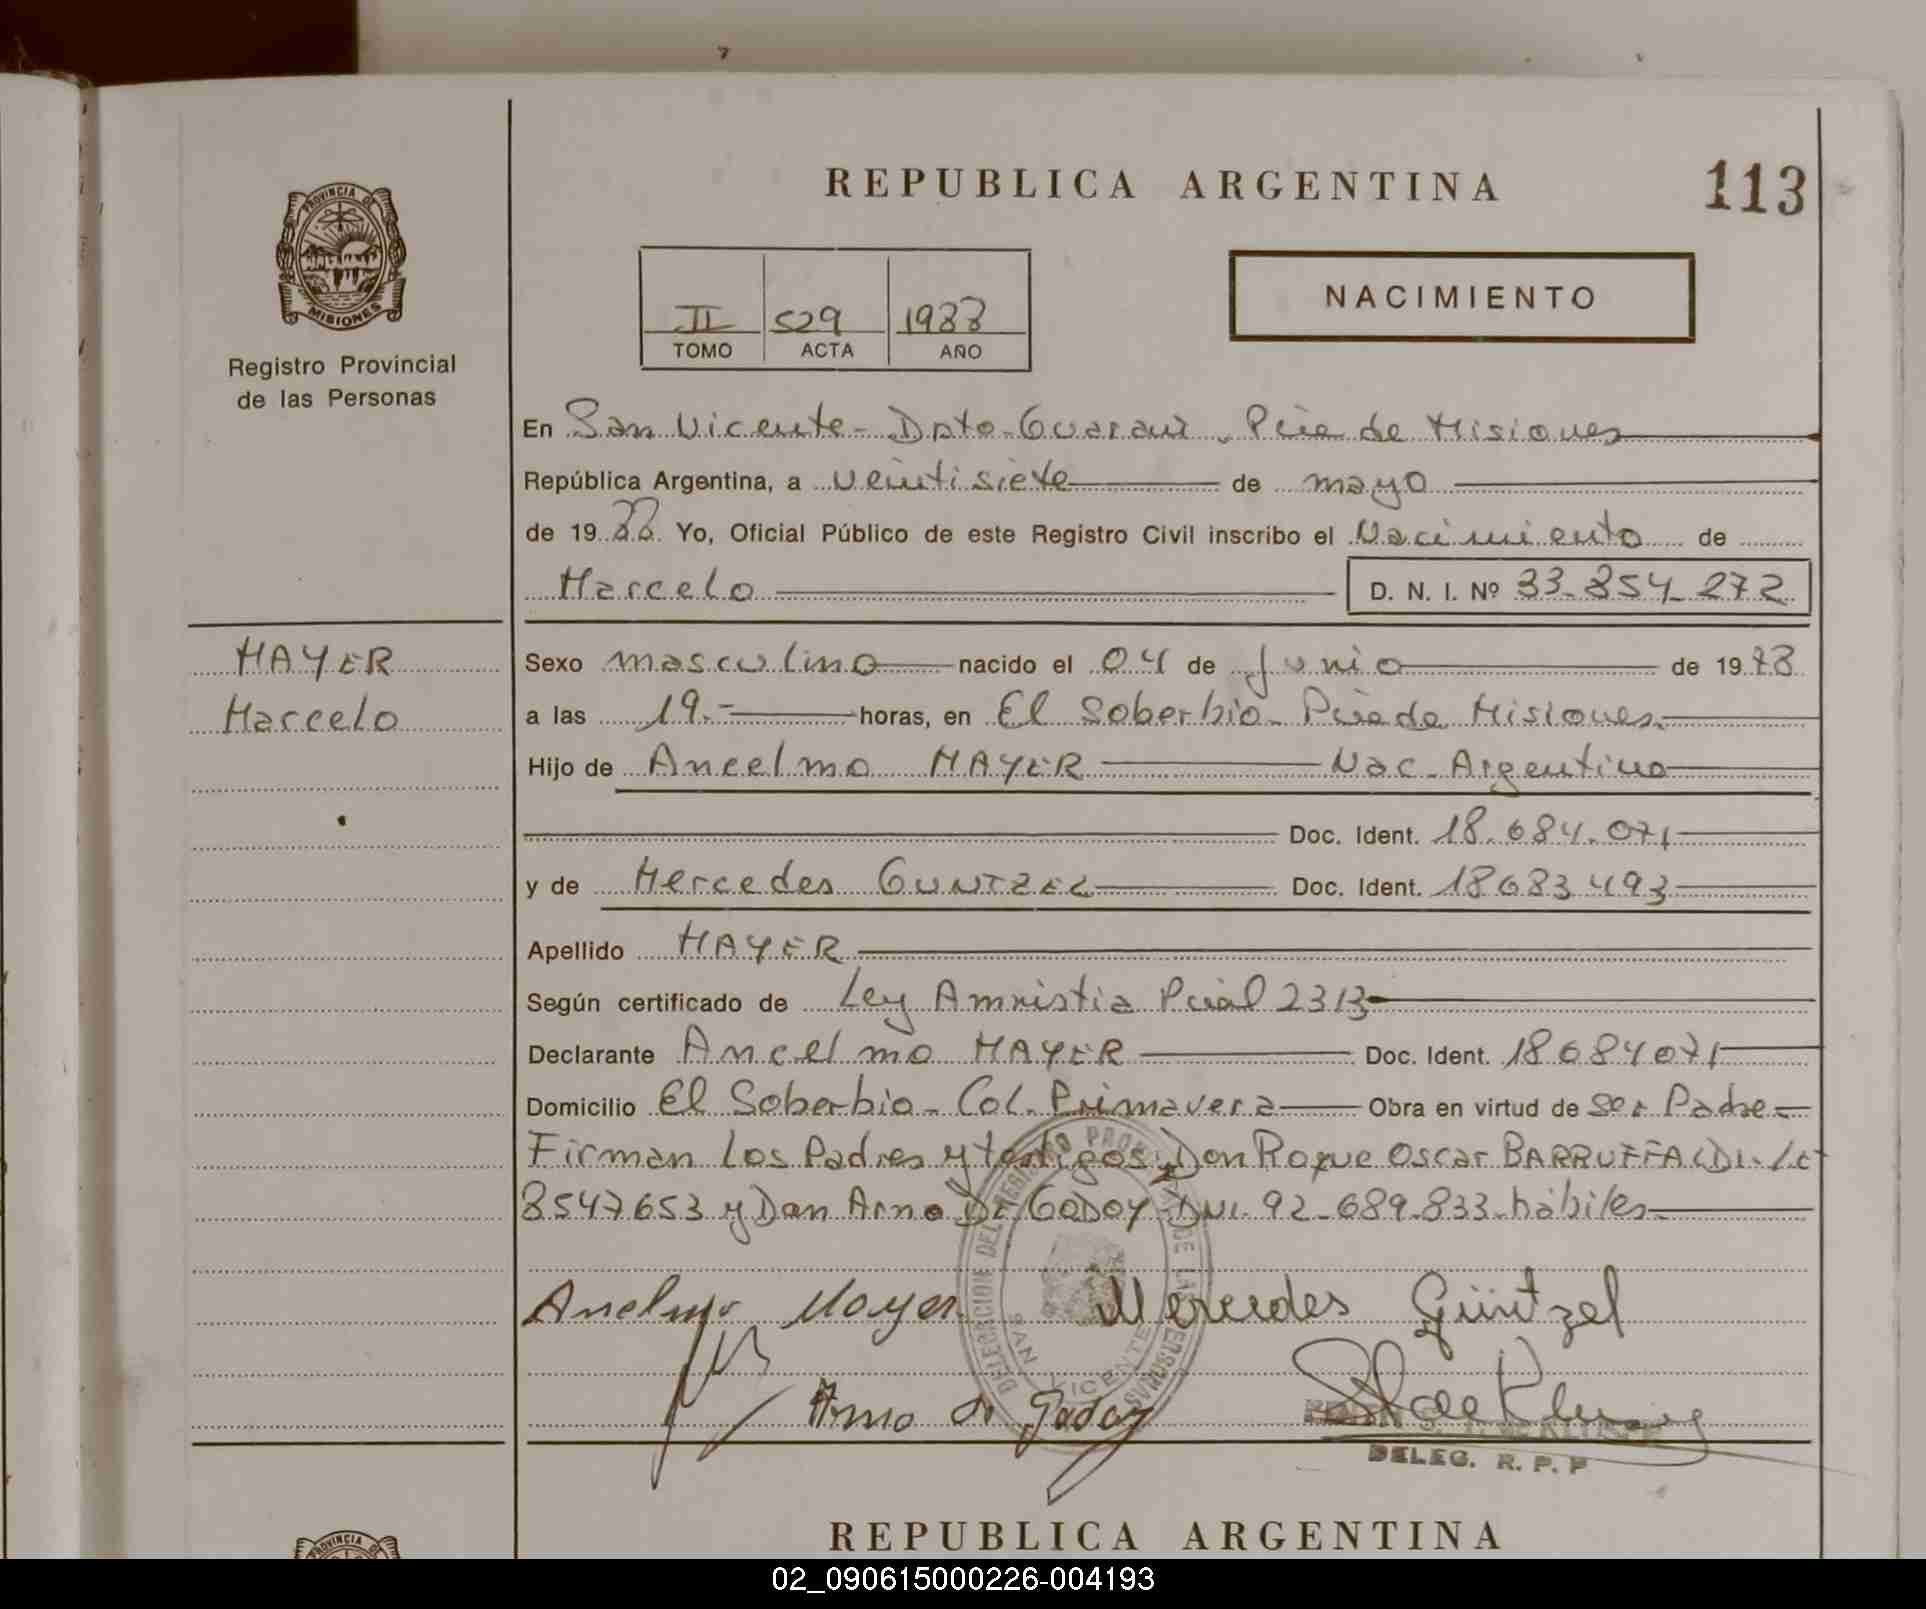 REPUBLICA ARGENTINA
113
PROVINCIA DE
MISIONES
Registro Provincial
de las Personas
II 529 1988
TOMO ACTA AÑO
NACIMIENTO
En San Vicente - Dpto - Guaraní - Pcia de Misiones
República Argentina, a veintisiete de mayo
de 1988 Yo, Oficial Público de este Registro Civil inscribo el Nacimiento de
Marcelo D. N. I. Nº 33-854-272
MAYER
Marcelo
Sexo masculino nacido el 04 de Junio de 19
a las 19.- horas, en El Soberbio - Pcia de Misiones.
Hijo de Ancelmo MAYER Nac. Argentino
Doc. Ident. 18.684.071
y de Mercedes GUNTZEL Doc. Ident. 18683493
Apellido MAYER
Según certificado de Ley Amnistia Pcial 2313
Declarante Ancelmo MAYER Doc. Ident. 18684071
Domicilio El Soberbio - Col. Primavera Obra en virtud de ser Padre
Firman los Padres y testigos Don Roque Oscar BARRUFFALDI -
8547653 y Don Arno DE GODOY DNI. 92-689.833-hábiles
DELEGACION DEL REGISTRO PROVINCIAL DE LAS PERSONAS
SAN VICENTE
Anelmo Mayer Mercedes Güntzel
Arno de Godoy
DELEG. R. P. P
REPUBLICA ARGENTINA
PROVINCIA
02_090615000226-004193